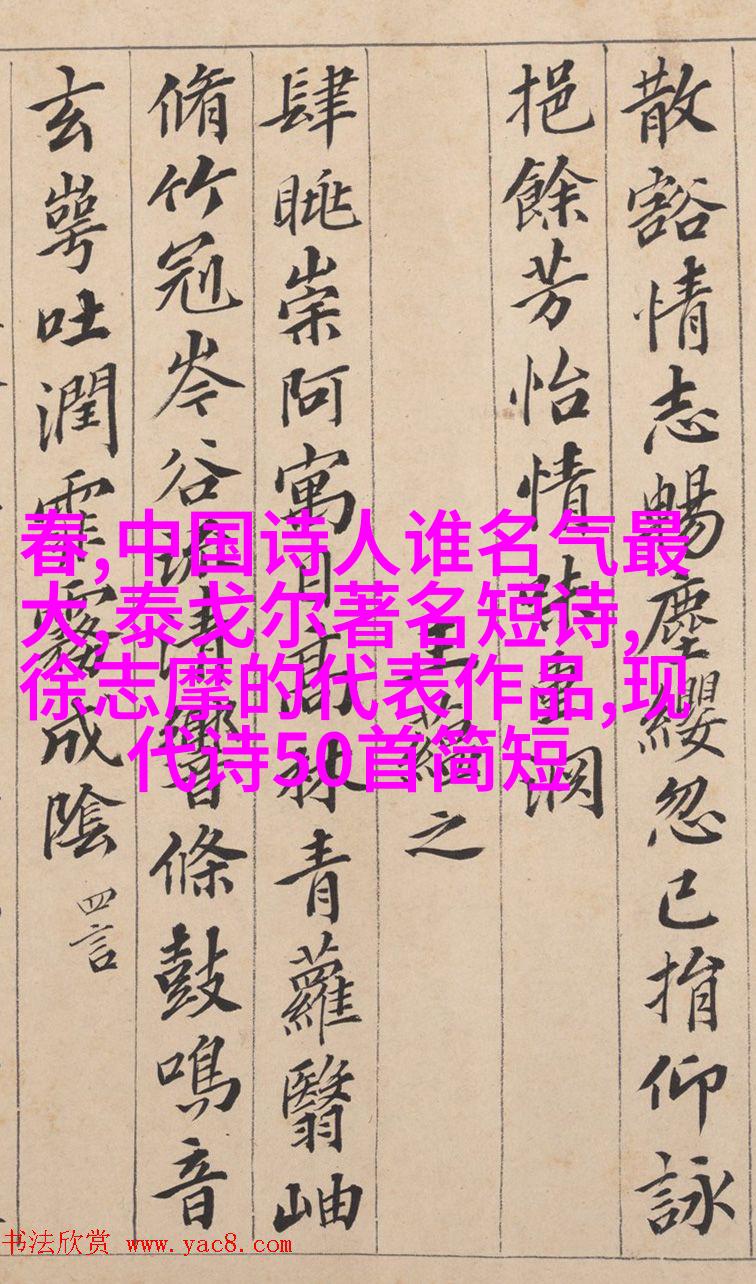 散豁情志暢塵纓忽已捐仰詠
挹餘芳怡情味重淵
王蘊之
肆眺崇阿寓目高林青蘿翳岫
脩竹冠岑谷流清響條鼓鳴音
玄崿吐潤霏霧成陰 四言
春,中国诗人谁名气最
大,泰戈尔著名短诗,
徐志摩的代表作品,现
代诗50首简短
书法欣赏 www.yac8.com